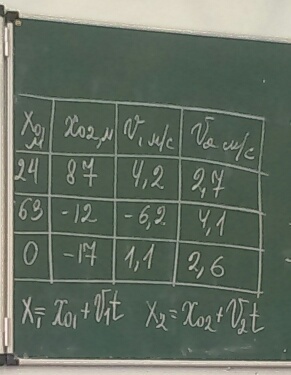 X₀₁, м X₀₂, м V₁ м/с V₂ м/с
24 87 4,2 2,7
63 -12 -6,2 4,1
0 -17 1,1 2,6
X₁=X₀₁+V₁t X₂=X₀₂+V₂t